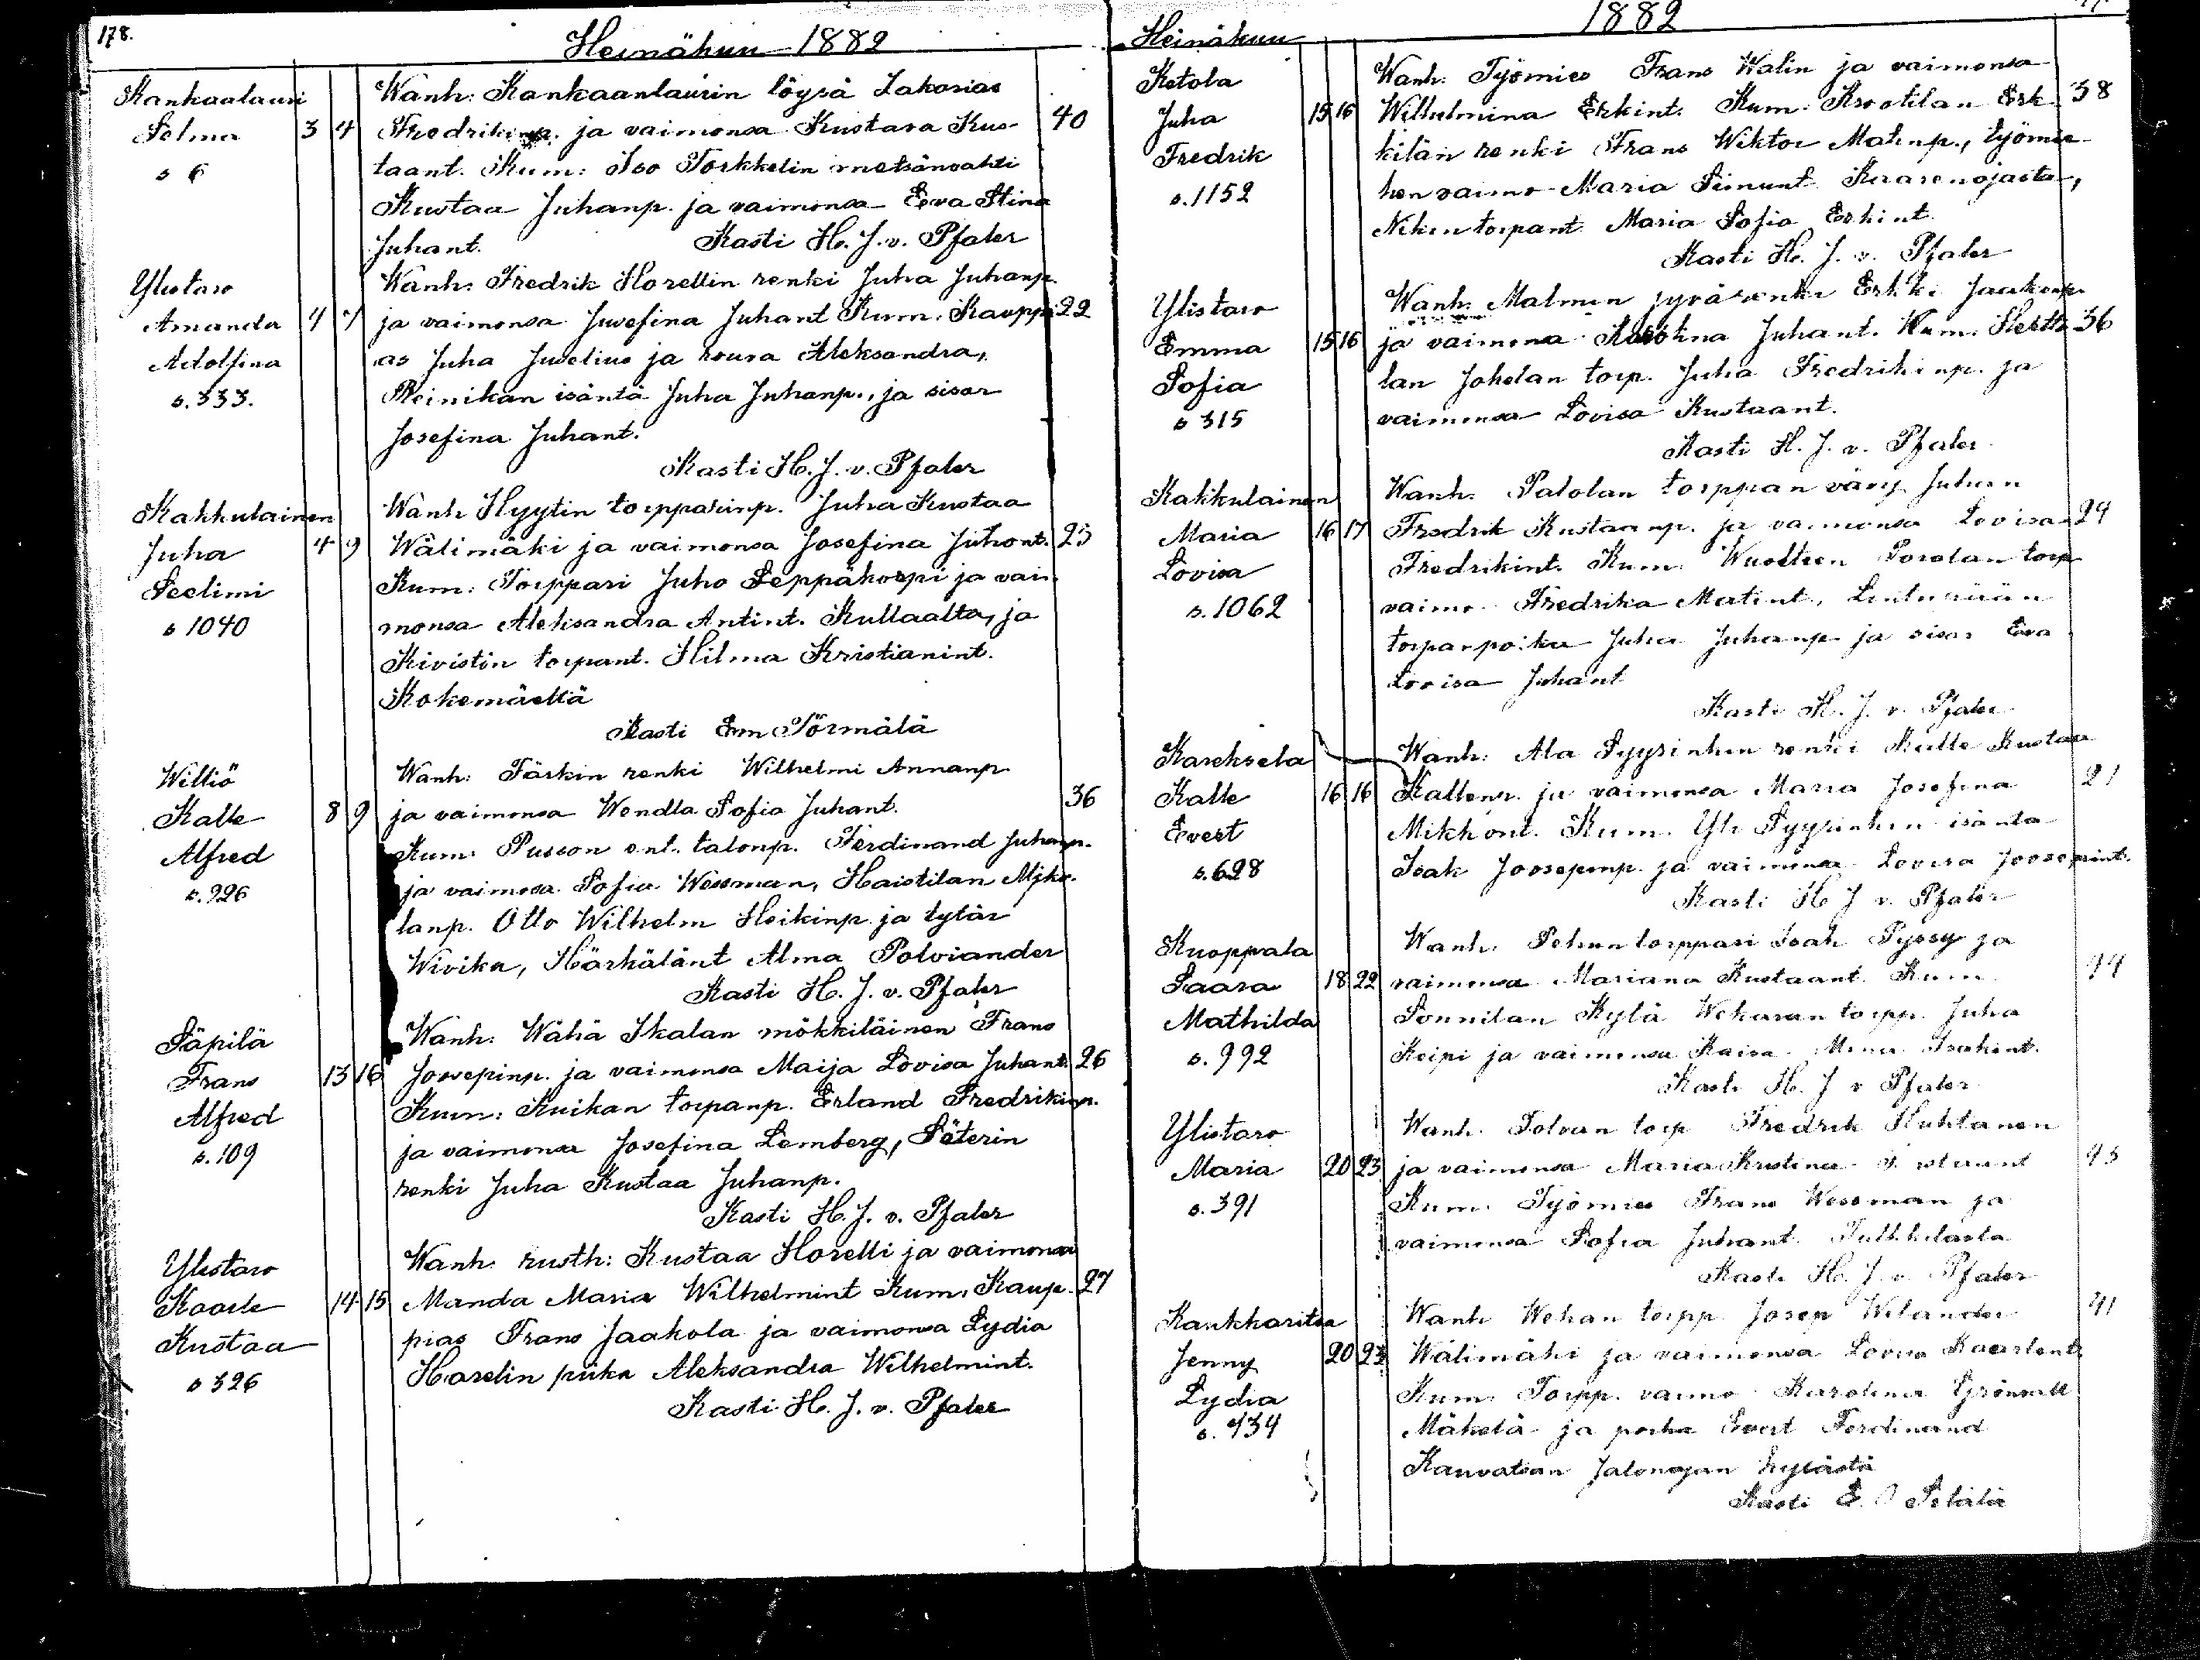 178.
Heinäkuu 1882
Kankaalauri
Selma 3 4
s 6
Wanh: Kankaanlaurin löysä Sakarias
Fredrikinp. ja vaimonsa Kustava Kus- 40
taant. Kum: Iso Torkkelin metsänvahti
Kustaa Juhanp. ja vaimonsa Eva Stina
Juhant. Kasti H. J. v. Pfaler
Ylistaro
Amanda 4 7
Adolfina
s. 333.
Wanh: Fredrik Horellin renki Juha Juhanp.
ja vaimonsa Josefina Juhant Kum: Kauppi 22
as Juha Juselius ja rouva Aleksandra,
Reinikan isäntä Juha Juhanp., ja sisar
Josefina Juhant.
Kasti H. J. v. Pfaler
Kakkulainen
Juha 4 9
Seelimi
s 1040
Wanh Hyytin torpparinp. Juha Kustaa
Wälimäki ja vaimonsa Josefina Juhont. 25
Kum: Torppari Juho Seppäkorpi ja vai
monsa Aleksandra Antint. Kullaalta, ja
Kivistin torpant. Hilma Kristianint.
Kokemäeltä
Kasti Em Törmälä
Williö
Kalle 8 9
Alfred
s. 226
Wanh: Tärkin renki Wilhelmi Annanp
ja vaimonsa Wendla Sofia Juhant. 36
Kum: Pusson ent. talonp. Ferdinand Juhanp.
ja vaimosa Sofia Wessman, Haistilan Mjka-
lanp. Otto Wilhelm Heikinp. ja tytär
Wivika, Härkälänt Alma Polviander
Kasti H. J. v. Pfaler
Säpilä
Frans 13 16
Alfred
s. 109
Wanh: Wähä Skalan mökkiläinen Frans
Joosepinp. ja vaimonsa Maija Lovisa Juhant. 26
Kum: Kuikan torpanp. Erland Fredrikinp.
ja vaimonsa Josefina Lemberg, Säterin
renki Juha Kustaa Juhanp.
Kasti H. J. v. Pfaler
Ylistaro
Kaarle 14 15
Kustaa
s 326
Wanh rusth: Kustaa Horelli ja vaimonsa
Manda Maria Wilhelmint Kum: Kaup- 27
pias Frans Jaakola ja vaimonsa Lydia
Harelin piika Aleksandra Wilhelmint.
Kasti H. J. v. Pfaler
Heinäkuu 1882
Ketola
Juha 15 16
Fredrik
s. 1152
Wanh: Työmies Frans Walin ja vaimonsa
Wilhelmina Erkint. Kum: Krootilan Erk- 38
kilän renki Frans Wiktor Matinp., työmie-
hen vaimo Maria Simunt Kaarenojasta,
Niken torpant. Maria Sofia Erkint.
Kasti H. J. v. Pfaler
Ylistaro
Emma 15 16
Sofia
s 315
Wanh: Malmin jyvärenki Erkki Jaakonp.
ja vaimonsa Juhant. Kum. Hertti 36
lan Johelan torp. Juha Fredrikinp. ja
vaimonsa Lovisa Kustaant.
Kasti H. J. v. Pfaler
Kakkulainen
Maria 16 17
Lovisa
s. 1062
Wanh: Palolan torppan vävy Juhan
Fredrik Kustaanp. ja vaimonsa Lovisa 24
Fredrikint. Kum. torp
vaimo Fredrika Matint.,
torpanpoika Juha Juhanp ja sisar Eva
Lovisa Juhant
Kasti H. J. v. Pfaler
Kareksela
Kalle 16 16
Evert
s. 628
Wanh: Ala Pyysinken renki Kalle Kustaa
Kallenp. ja vaimonsa Maria Josefina 21
Mikkont. Kum. Yli Pyysinken isäntä
Isak Joosepinp ja vaimonsa Lovisa Joosepint.
Kasti H J v. Pfaler
Kuoppala
Saara 18 22
Mathilda
s. 992
Wanh. torppari Isak Pyssy ja
vaimonsa Mariana Kustaant Kum
Sonnilan Kylä torpp. Juha
Keipi ja vaimonsa Kaisa
Kasti H. J v Pfaler
Ylistaro
Maria 20 23
s. 391
Wanh torp Fredrik Huhtanen
ja vaimonsa Maria Kristina
Kum. Työmies Frans Wessman ja
vaimonsa Sofia Juhant. Tulkkilasta
Kasti H. J. v Pfaler
Kankkaritsa
Jenny 20 23
Lydia
s. 434
Wanh torpp Josep Welander 41
Wälimäki ja vaimonsa Lovisa Kaarlent.
Kum. Torpp. vaimo Karolina Grönvall
Mäkelä ja poika Evert Ferdinand
Kauvatsan Jalonojan kylästä
Kasti